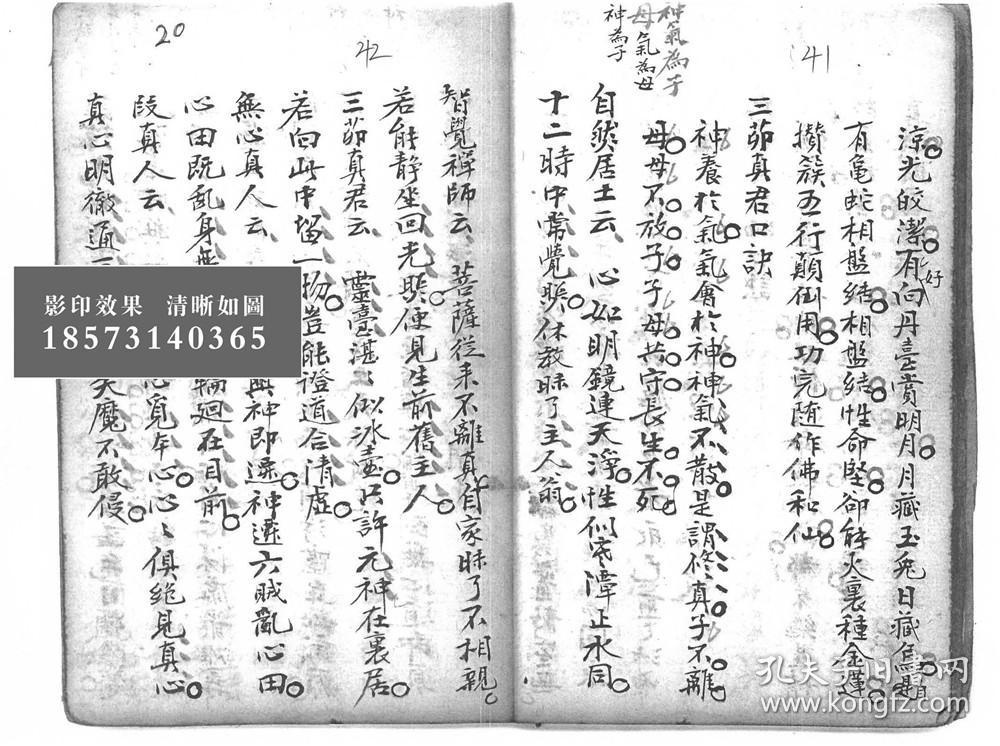 41
神氣為子
母氣為母
神為子
涼光皎潔好有向丹臺賞明月月藏玉兔日藏烏自
有龜蛇相盤結相盤結性命堅卻能火裏種金蓮
攢簇五行顛倒用功完隨作佛和仙
三茆真君口訣
神養於氣氣會於神神氣不散是謂修真子不離
母母不放子子母共守長生不死
自然居士云 心如明鏡連天淨性似寒潭止水同
十二時中常覺照休教昧了主人翁
42
20
智覺禪師云 菩薩從来不離真自家昧了不相親
若能静坐回光照便見生前舊主人
三茆真君云 靈臺湛〻似冰壺只許元神在裏居
若向此中留一物豈能證道合清虛
無心真人云 與神即遷神遷六賊亂心田
心田既亂身無 輪廻在目前
段真人云 心寬本心心〻俱絶見真心
真心明徹通三 天魔不敢侵
影印效果 清晰如圖
18573140365
孔夫子旧書网
www.kongfz.com